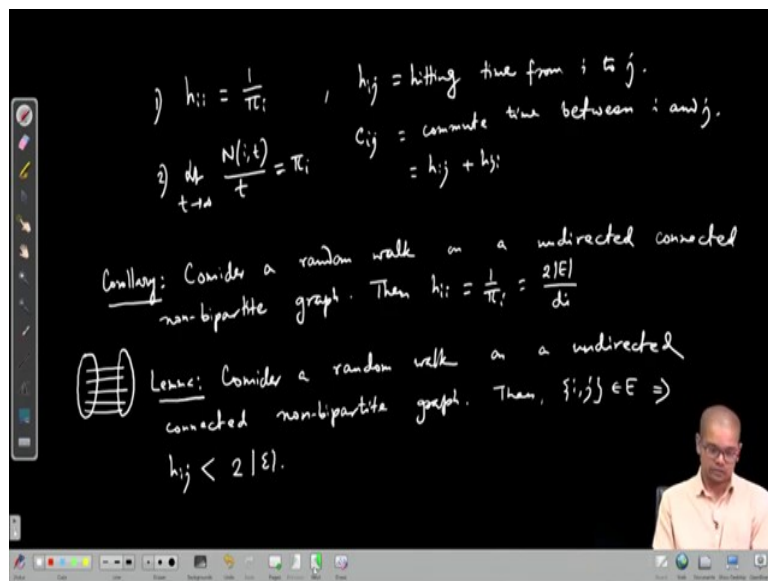 1) h_ii = 1/π_i , h_ij = hitting time from i to j.
2) lt t→∞ N(i,t)/t = π_i
C_ij = commute time between i and j.
= h_ij + h_ji
Corollary: Consider a random walk on a undirected connected
non-bipartite graph. Then h_ii = 1/π_i = 2|E|/d_i
Lemma: Consider a random walk on a undirected
connected non-bipartite graph. Then, {i,j} ∈ E ⇒
h_ij < 2|E|.